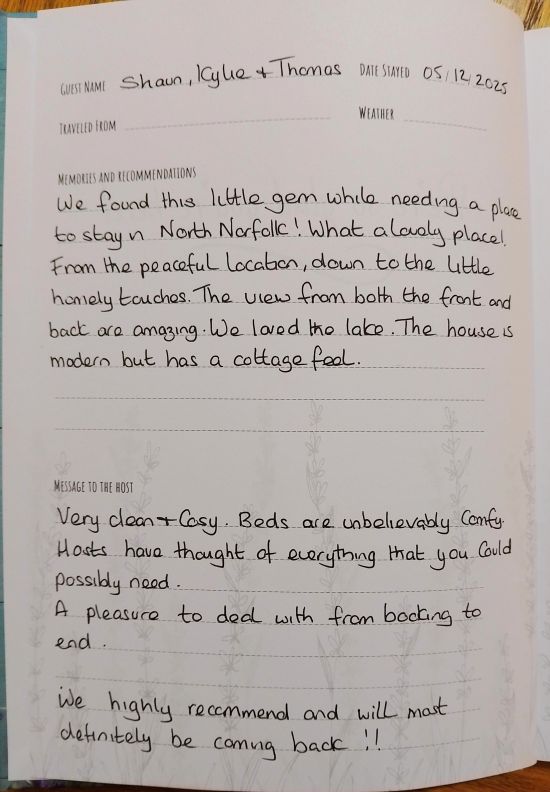 GUEST NAME Shaun, Kylie + Thomas DATE STAYED 05/12/2025
TRAVELED FROM WEATHER
MEMORIES AND RECOMMENDATIONS
We found this little gem while needing a place
to stay n North Norfolk! What a lovely place!
From the peaceful location, down to the little
homely touches. The view from both the front and
back are amazing. We loved the lake. The house is
modern but has a cottage feel.
MESSAGE TO THE HOST
Very clean + Cosy. Beds are unbelievably Comfy.
Hosts have thought of everything that you Could
possibly need.
A pleasure to deal with from booking to
end.
We highly recommend and will most
definitely be coming back !!